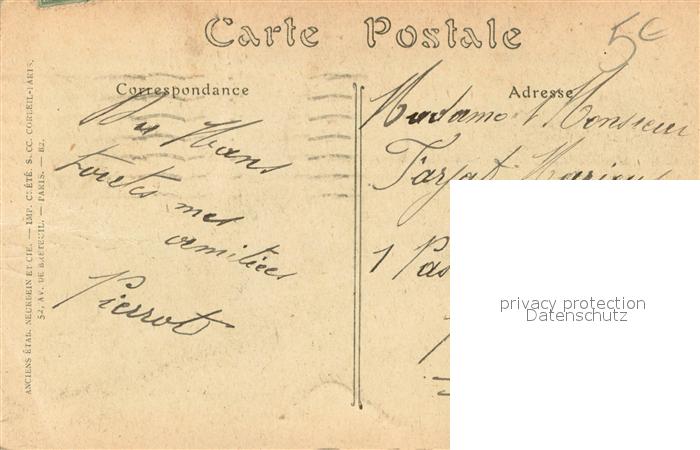 Carte Postale
5€
Correspondance
Du Mans
toutes mes
amitiées
Pierrot
Adresse
Madame Monsieur
1 Pas
ANCIENS ÉTAB. NEURDEIN ET CIE. — IMP. CRÉTÉ. S. CC. CORBEIL-PARIS.
52, AV. DE BRETEUIL. — PARIS. — B2.
privacy protection
Datenschutz